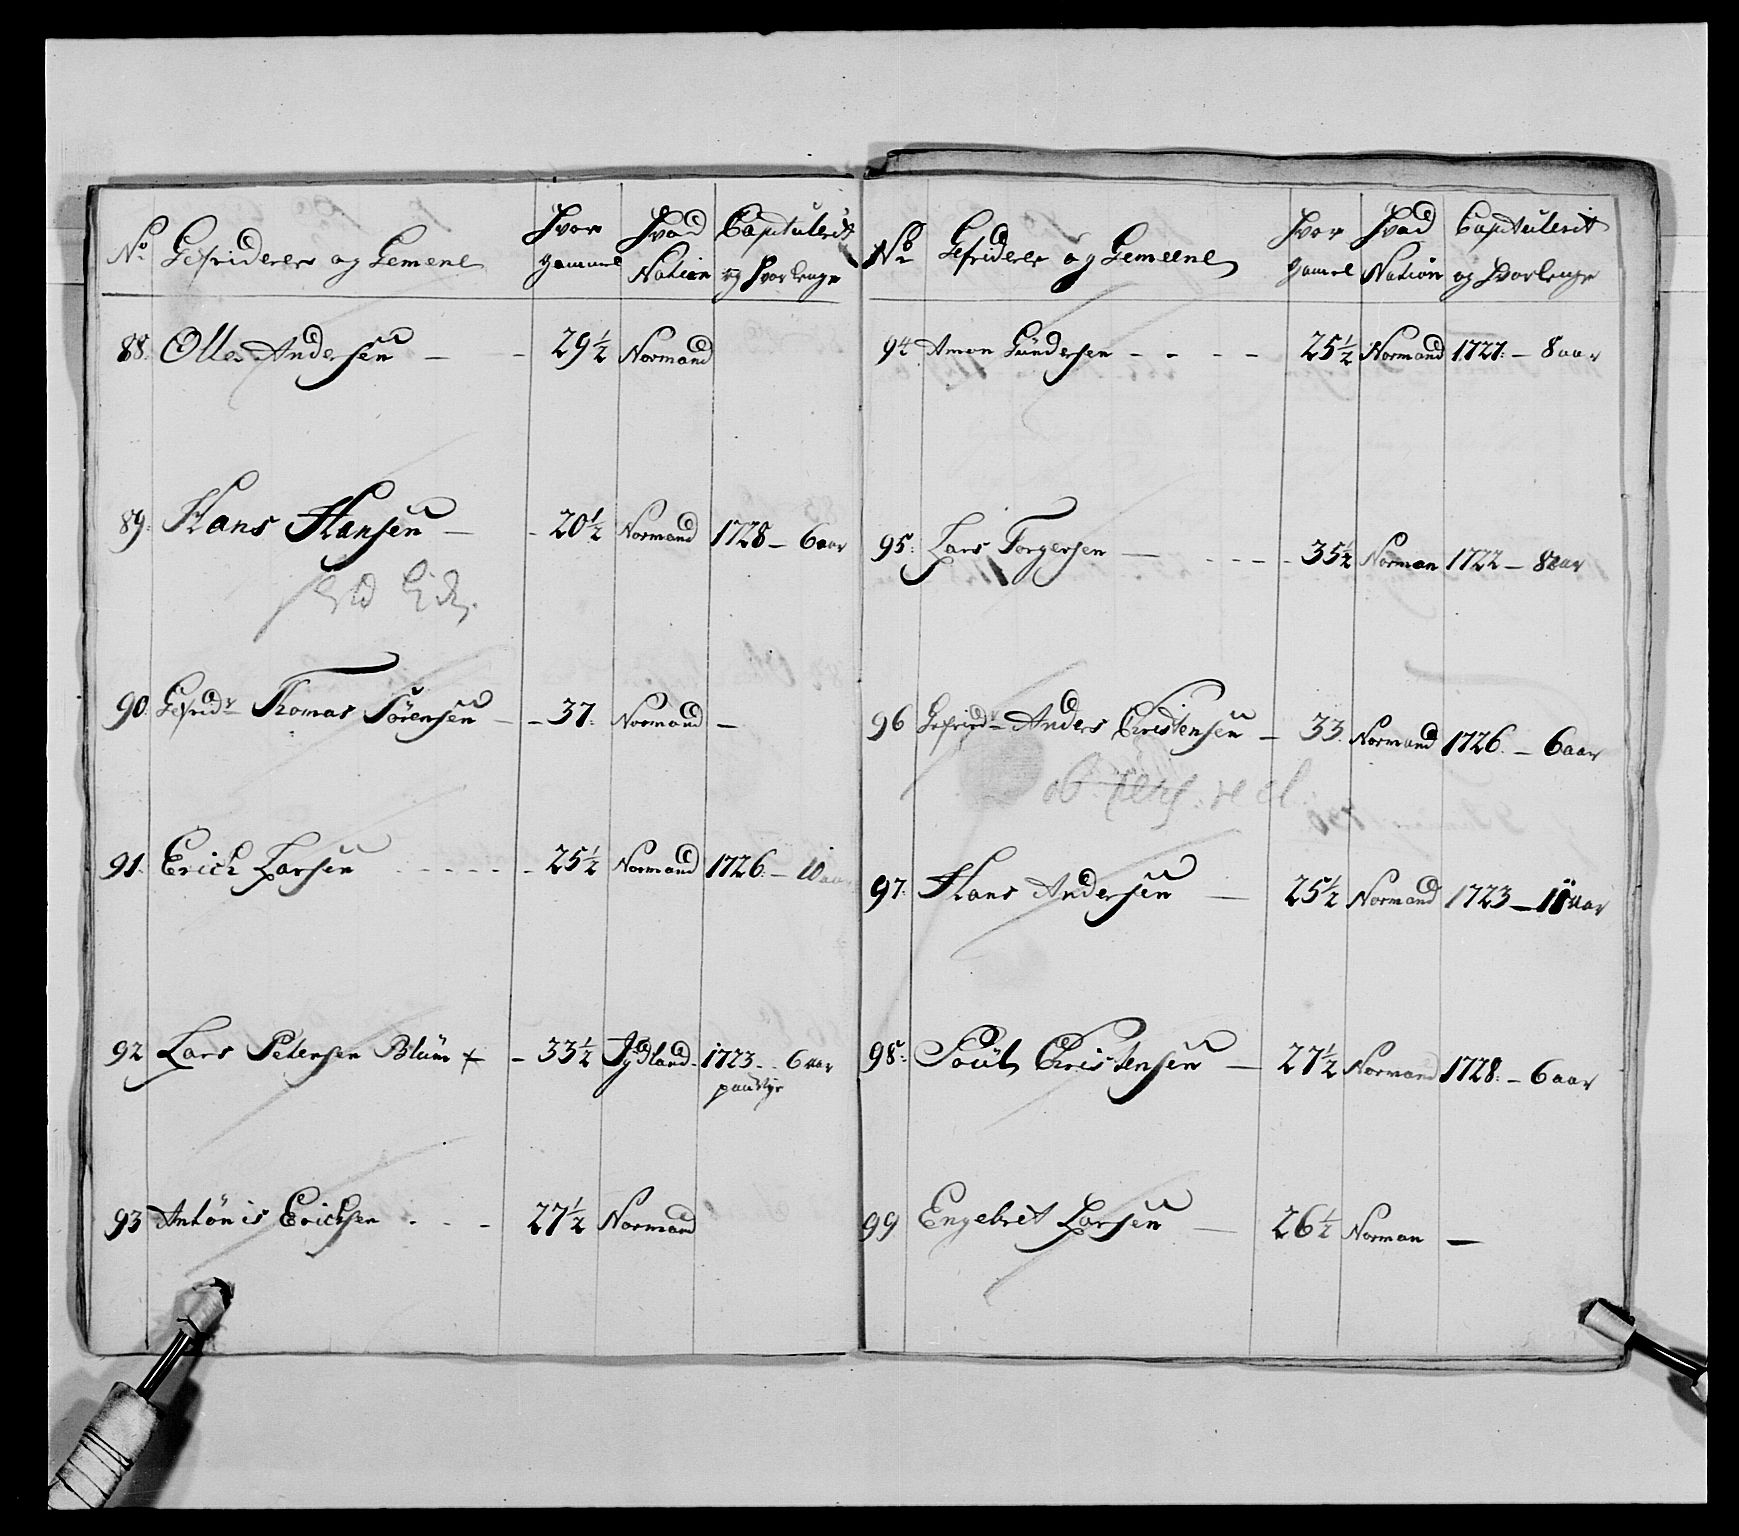 No Gefriderer og Gemene Hvor gammel Hvad Nation Captulerit og Hvorlenge
88. Olle Andersen — - 29½ Normand
89. Hans Hansen — - 20½ Normand 1728 — 6 aar
90. Gefridr Thomas Sörensen - - 37. Normand —
91. Erich Larsen - - - - - - 25½ Normand 1726. — 10 aar
92 Lars Petersen Blüm + - 33½ Jydland. 1723. - 6 aar
paa Nye
93 Antönis Erichsen - - - 27½ Normand
No Gefriderer og Gemeene Hvor gamel Hvad Nation Captulerit og Hvorlenge
94 Amon Gündersen - - - - - 25½ Normand 1727. — 8 aar
95. Lars Torgersen — - - - - 35½ Norman 1722 — 8 aar
96 Gefridr Anders Christensen — 33. Normand 1726. — 6 aar
97. Hans Andersen — 25½ Normand 1723 — 11 aar
98. Poül Christensen — 27½ Normand 1728. — 6 aar
99 Engebret Larsen — 26½ Norman —